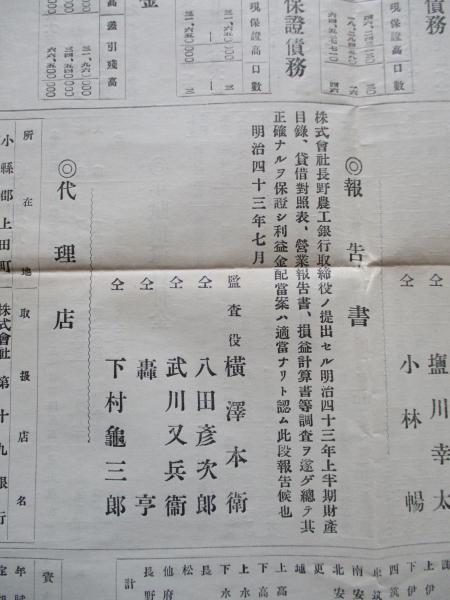 債務
保證債務
現保證高
口數
差引殘高
仝 鹽川幸太
仝 小林暢
◎報告書
株式會社長野農工銀行取締役ノ提出セル明治四十三年上半期財產
目錄、貸借對照表、營業報告書、損益計算書等調査ヲ遂ゲ總テ其
正確ナルヲ保證シ利益金配當案ハ適當ナリト認ム此段報告候也
明治四十三年七月
監査役 橫澤本衛
仝 八田彥次郎
仝 武川又兵衞
仝 轟亨
仝 下村龜三郎
◎代理店
所在地 取扱店名
小縣郡上田町 株式會社第十九銀行
上伊
下伊
西筑
南安
北安
更
埴
上高
下高
上水
下水
長
松
仙府
長野
計
資
年賦